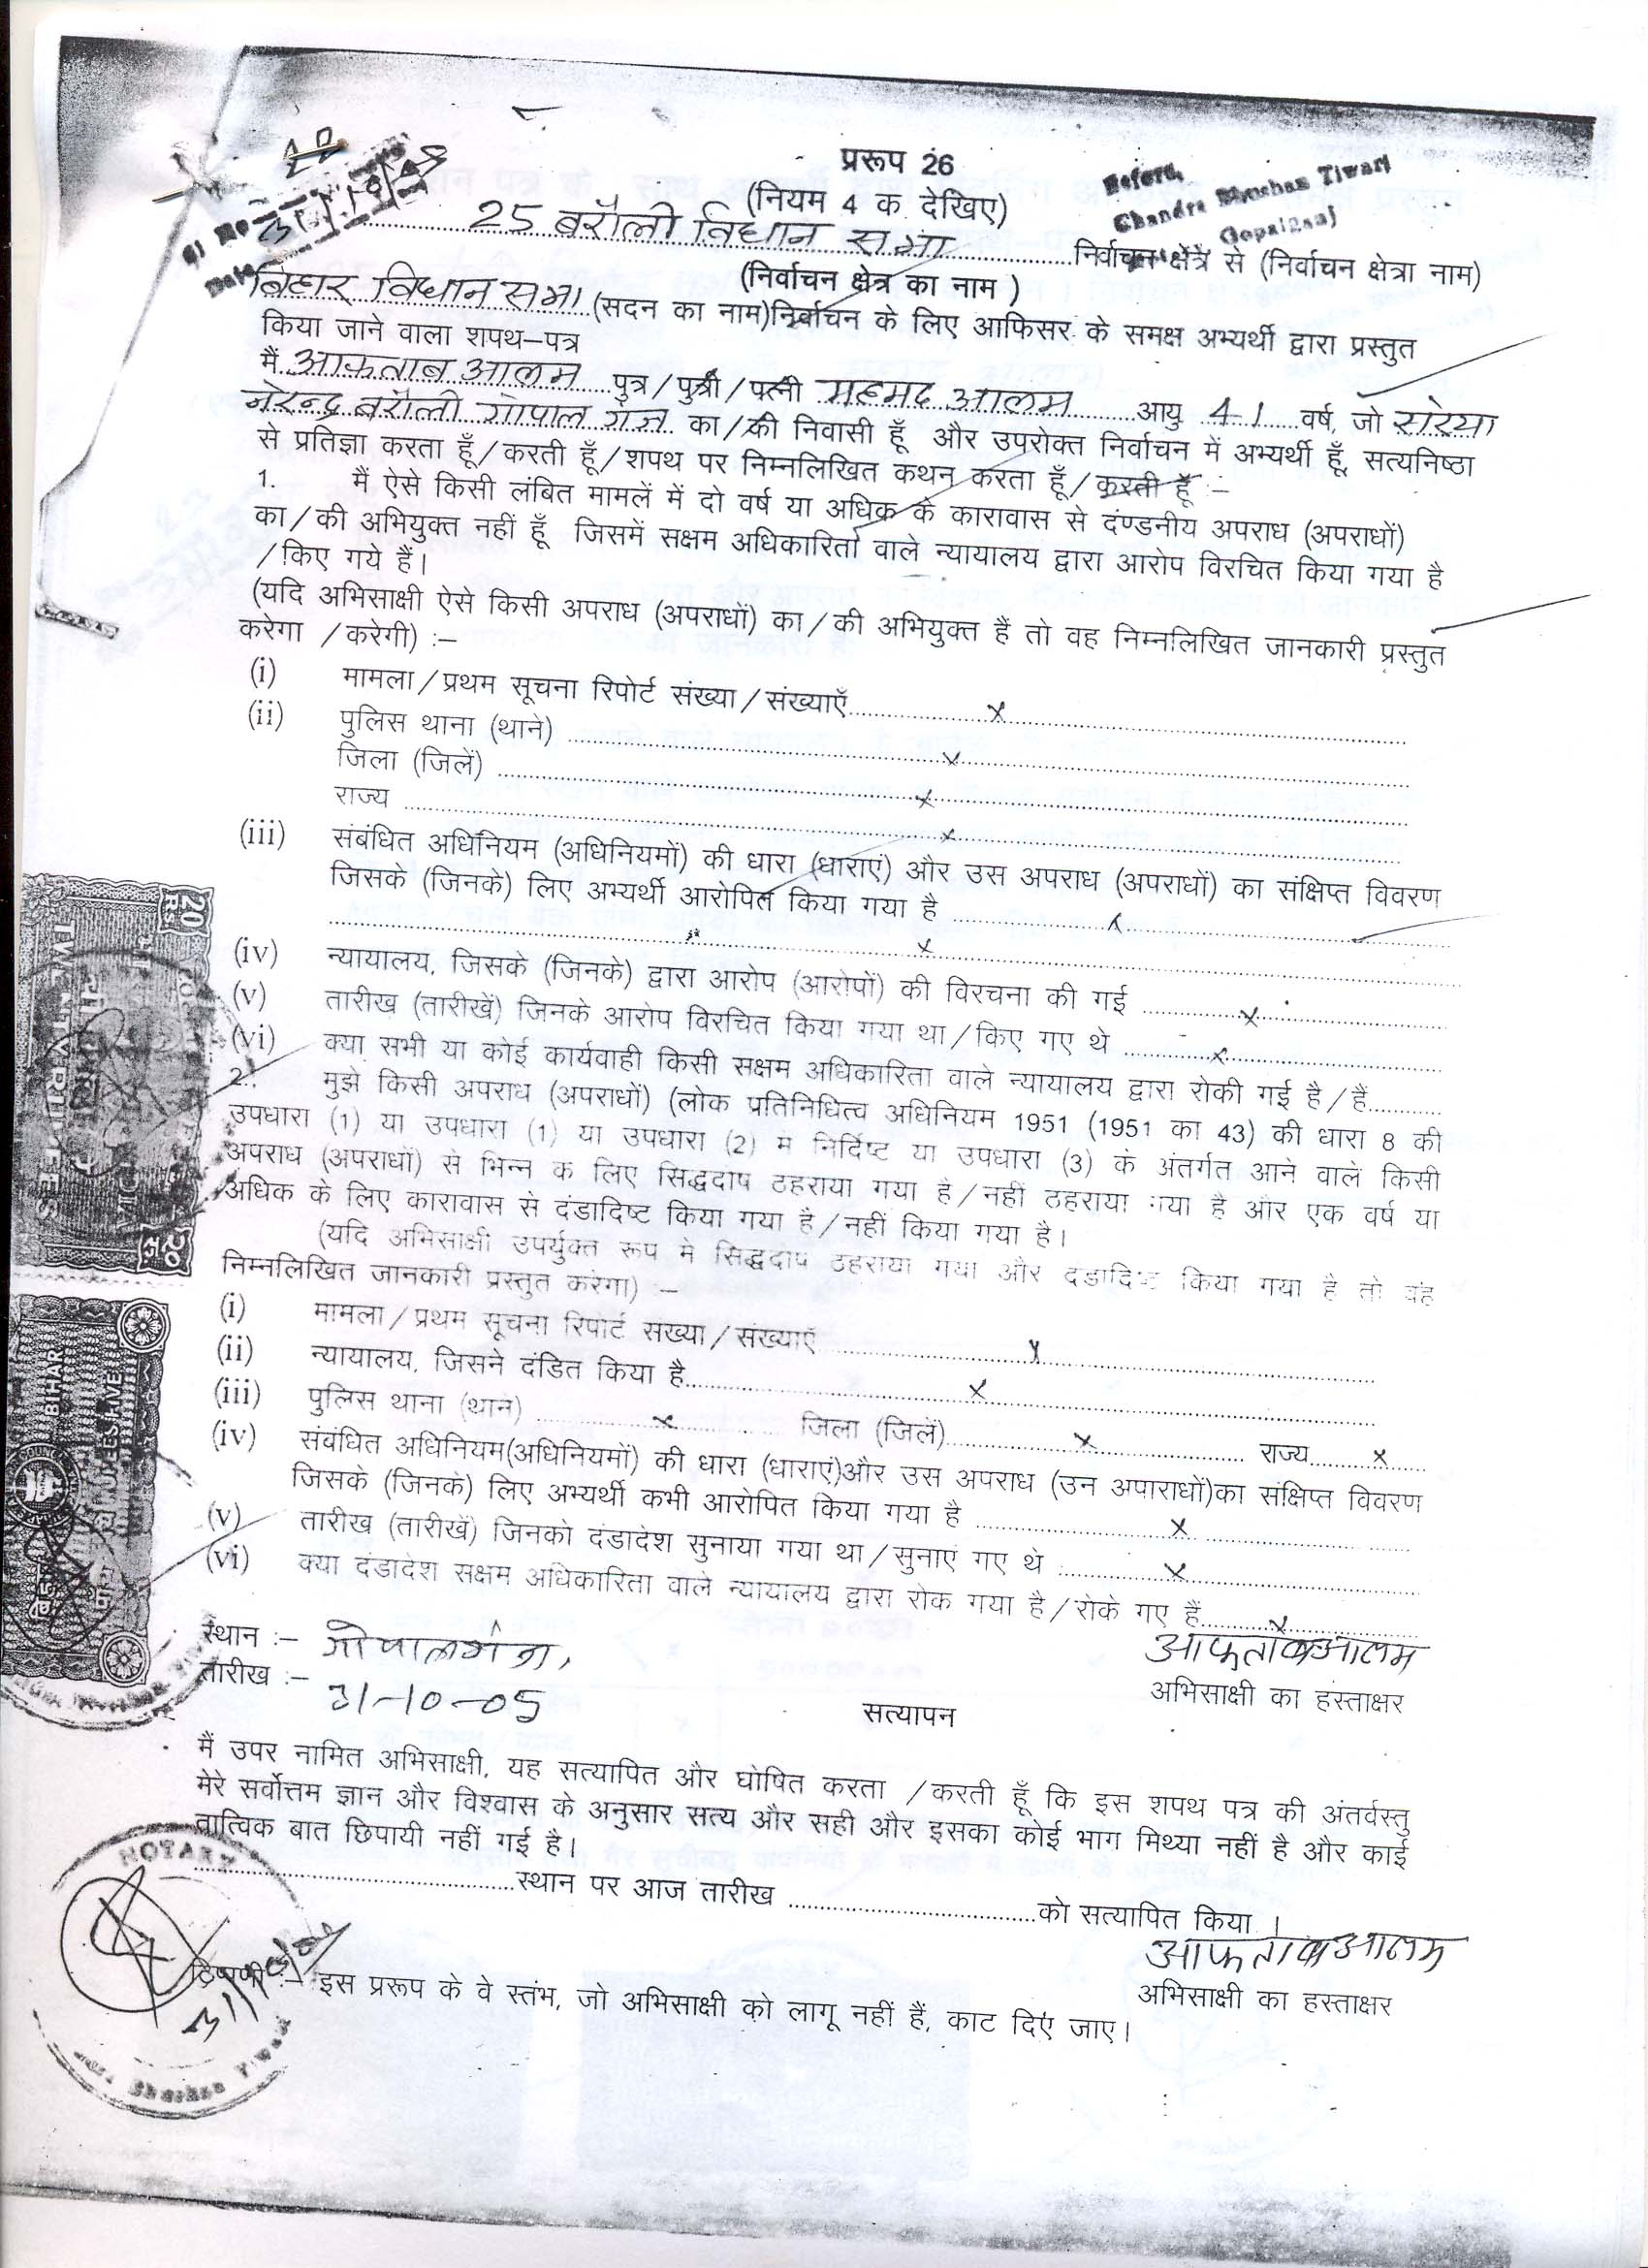 प्ररूप 26
(नियम 4 क देखिए)
Before,
Chandra Bhushan Tiwari
Gopalganj
Sl No 22
Date 31/10/05
25 बरौली विधान सभा निर्वाचन क्षेत्रै से (निर्वाचन क्षेत्रा नाम)
(निर्वाचन क्षेत्र का नाम )
बिहार विधान सभा (सदन का नाम)निर्वाचन के लिए आफिसर के समक्ष अभ्यर्थी द्वारा प्रस्तुत
किया जाने वाला शपथ–पत्र
मैं आफताब आलम पुत्र/पुत्री/पत्नी महमद आलम आयु 41 वर्ष, जो सरेया
नरेन्द्र बरौली गोपाल गंज का/की निवासी हूँ और उपरोक्त निर्वाचन में अभ्यर्थी हूँ, सत्यनिष्ठा
से प्रतिज्ञा करता हूँ/करती हूँ/शपथ पर निम्नलिखित कथन करता हूँ/करती हूँ :–
1. मैं ऐसे किसी लंबित मामलें में दो वर्ष या अधिक के कारावास से दंण्डनीय अपराध (अपराधों)
का/की अभियुक्त नहीं हूँ जिसमें सक्षम अधिकारिता वाले न्यायालय द्वारा आरोप विरचित किया गया है
/किए गये हैं।
(यदि अभिसाक्षी ऐसे किसी अपराध (अपराधों) का/की अभियुक्त हैं तो वह निम्नलिखित जानकारी प्रस्तुत
करेगा /करेगी) :–
(i) मामला/प्रथम सूचना रिपोर्ट संख्या/संख्याएँ x
(ii) पुलिस थाना (थाने) x
जिला (जिलें) x
राज्य x
(iii) संबंधित अधिनियम (अधिनियमों) की धारा (धाराएं) और उस अपराध (अपराधों) का संक्षिप्त विवरण
जिसके (जिनके) लिए अभ्यर्थी आरोपित किया गया है x
x
(iv) न्यायालय, जिसके (जिनके) द्वारा आरोप (आरोपों) की विरचना की गई x
(v) तारीख (तारीखें) जिनके आरोप विरचित किया गया था/किए गए थे x
(vi) क्या सभी या कोई कार्यवाही किसी सक्षम अधिकारिता वाले न्यायालय द्वारा रोकी गई है/हैं
2. मुझे किसी अपराध (अपराधों) (लोक प्रतिनिधित्व अधिनियम 1951 (1951 का 43) की धारा 8 की
उपधारा (1) या उपधारा (1) या उपधारा (2) में निर्दिष्ट या उपधारा (3) के अंतर्गत आने वाले किसी
अपराध (अपराधों) से भिन्न के लिए सिद्धदोष ठहराया गया है/नहीं ठहराया गया है और एक वर्ष या
अधिक के लिए कारावास से दंडादिष्ट किया गया है/नहीं किया गया है।
(यदि अभिसाक्षी उपर्युक्त रूप में सिद्धदोष ठहराया गया और दंडादिष्ट किया गया है तो वह
निम्नलिखित जानकारी प्रस्तुत करेगा) :–
(i) मामला/प्रथम सूचना रिपोर्ट संख्या/संख्याएँ x
(ii) न्यायालय, जिसने दंडित किया है x
(iii) पुलिस थाना (थाने) x जिला (जिलें) x राज्य x
(iv) संबंधित अधिनियम(अधिनियमों) की धारा (धाराएं)और उस अपराध (उन अपाराधों)का संक्षिप्त विवरण
जिसके (जिनके) लिए अभ्यर्थी कभी आरोपित किया गया है x
(v) तारीख (तारीखें) जिनको दंडादेश सुनाया गया था/सुनाए गए थे x
(vi) क्या दंडादेश सक्षम अधिकारिता वाले न्यायालय द्वारा रोक गया है/रोके गए हैं x
स्थान :– गोपालगंज,
तारीख :– 31-10-05
आफताब आलम
अभिसाक्षी का हस्ताक्षर
सत्यापन
मैं उपर नामित अभिसाक्षी, यह सत्यापित और घोषित करता /करती हूँ कि इस शपथ पत्र की अंतर्वस्तु
मेरे सर्वोत्तम ज्ञान और विश्वास के अनुसार सत्य और सही और इसका कोई भाग मिथ्या नहीं है और काई
तात्विक बात छिपायी नहीं गई है।
स्थान पर आज तारीख को सत्यापित किया ।
आफताब आलम
अभिसाक्षी का हस्ताक्षर
टिप्पणी :– इस प्ररूप के वे स्तंभ, जो अभिसाक्षी को लागू नहीं हैं, काट दिए जाए।
NOTARY
Bhushan Tiwari
20
TWENTY RUPEES
BIHAR
RUPEES FIVE